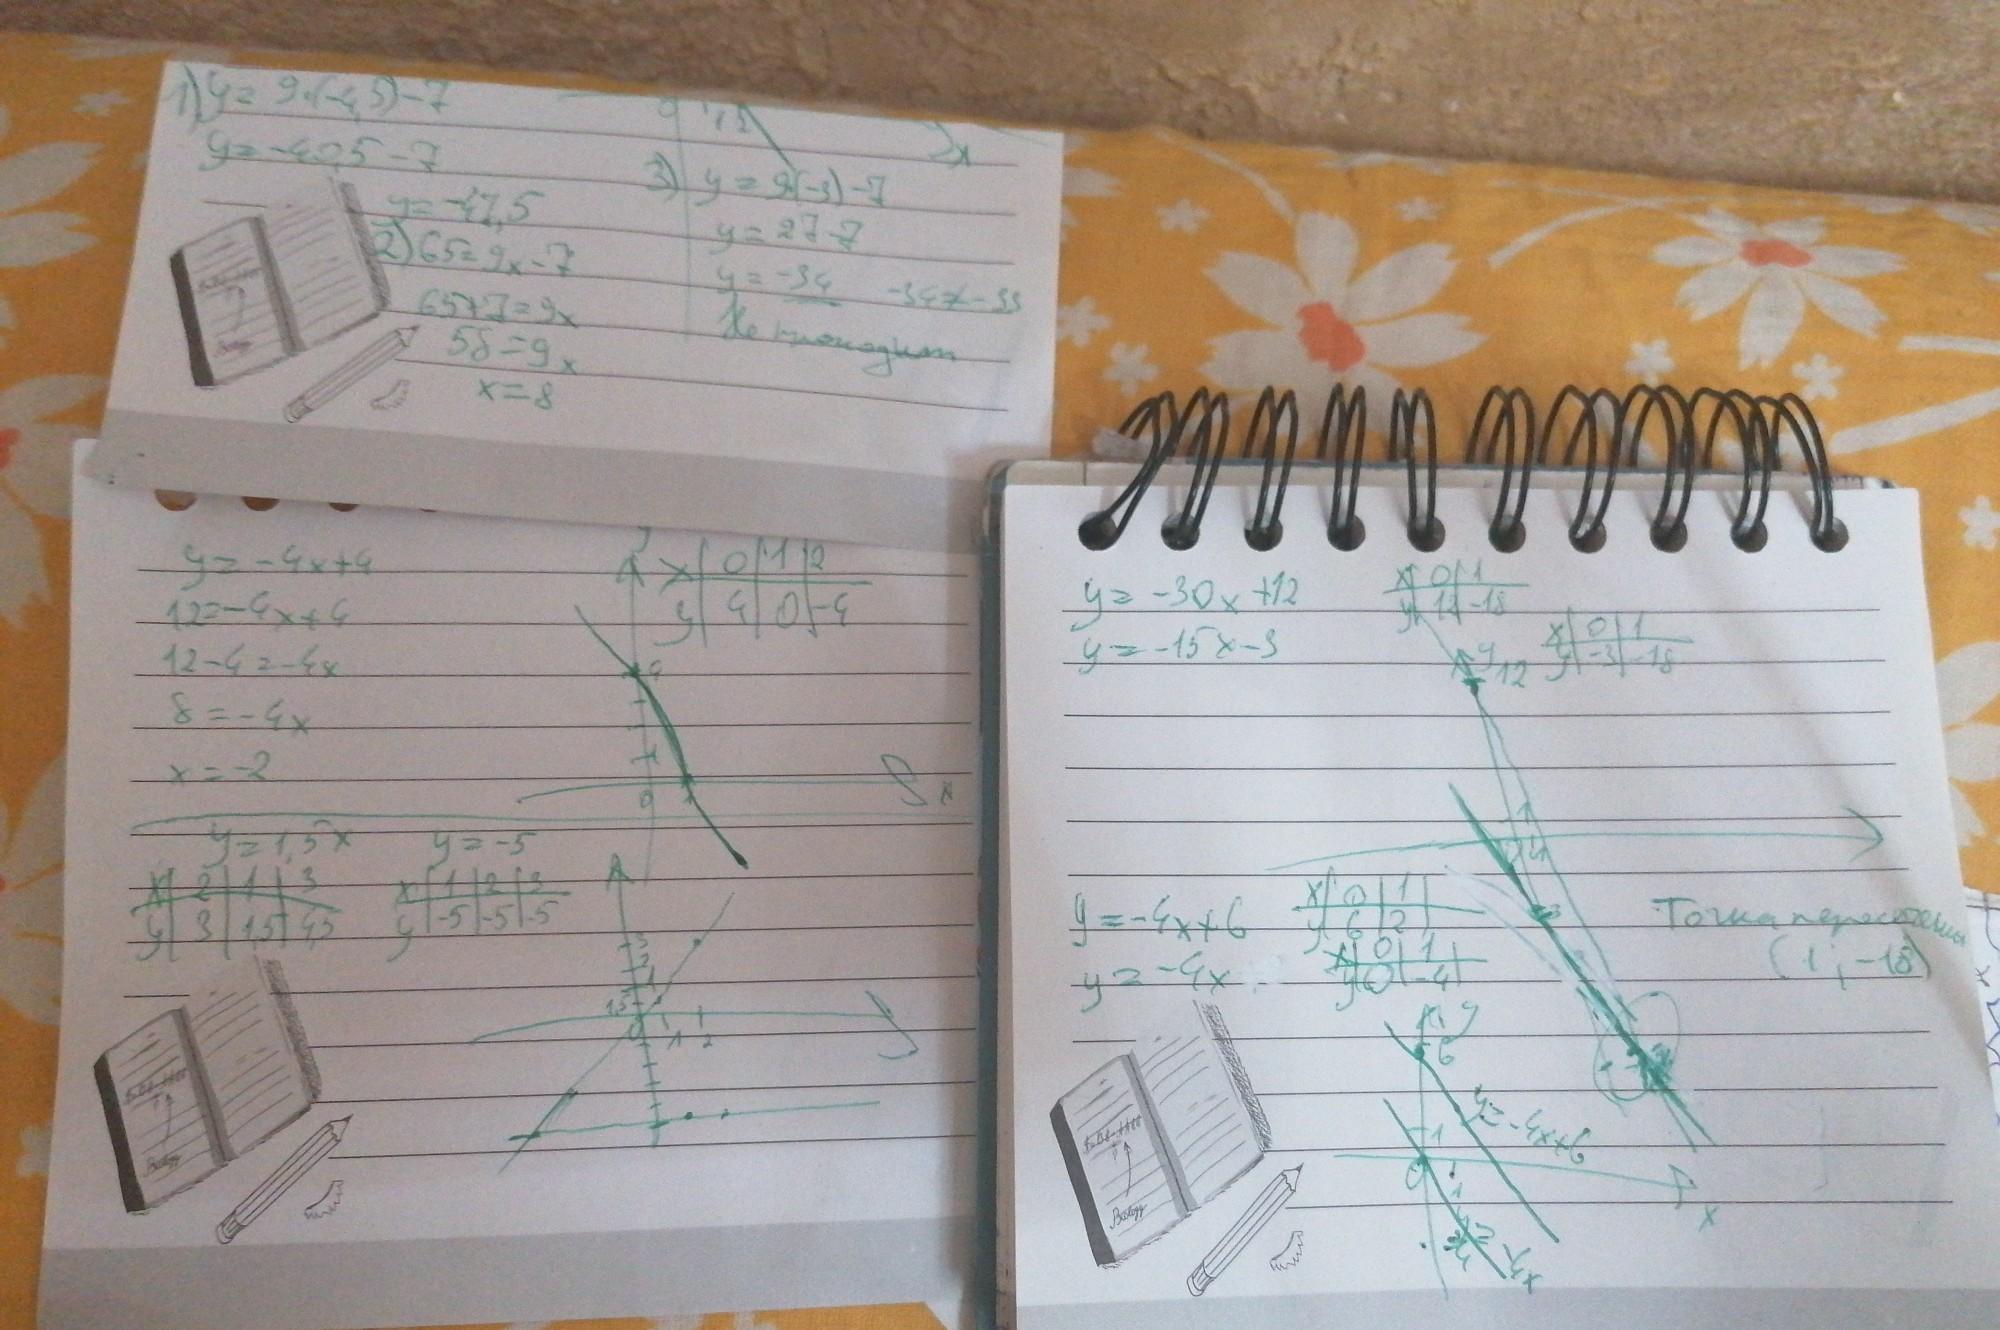 1) y = 9·(-4,5)-7
y = -40,5 - 7
y = -47,5
2) 65 = 9x - 7
65+7 = 9x
58 = 9x
x = 8
1,5
x
3) y = 9·(-3) - 7
y = 27-7
y = -34 -34≠-33
Не проходит
y = -4x+4
12 = -4x+4
12-4 = -4x
8 = -4x
x = -2
x 0 1 2
y 4 0 -4
4
1
0 1 x
y = 1,5x
x 2 1 3
y 3 1,5 4,5
y = -5
x 1 2 3
y -5 -5 -5
3
2
1,5
0 1 2
y = -30x +12
y = -15x-3
x 0 1
y 12 -18
x 0 1
y -3 -18
y 12
y = -4x+6
y = -4x
x 0 1
y 6 2
x 0 1
y 0 -4
Точка пересечения
(1; -18)
y
6
y = -4x+6
1
0 1 x
y = -4x
Biology
Biology